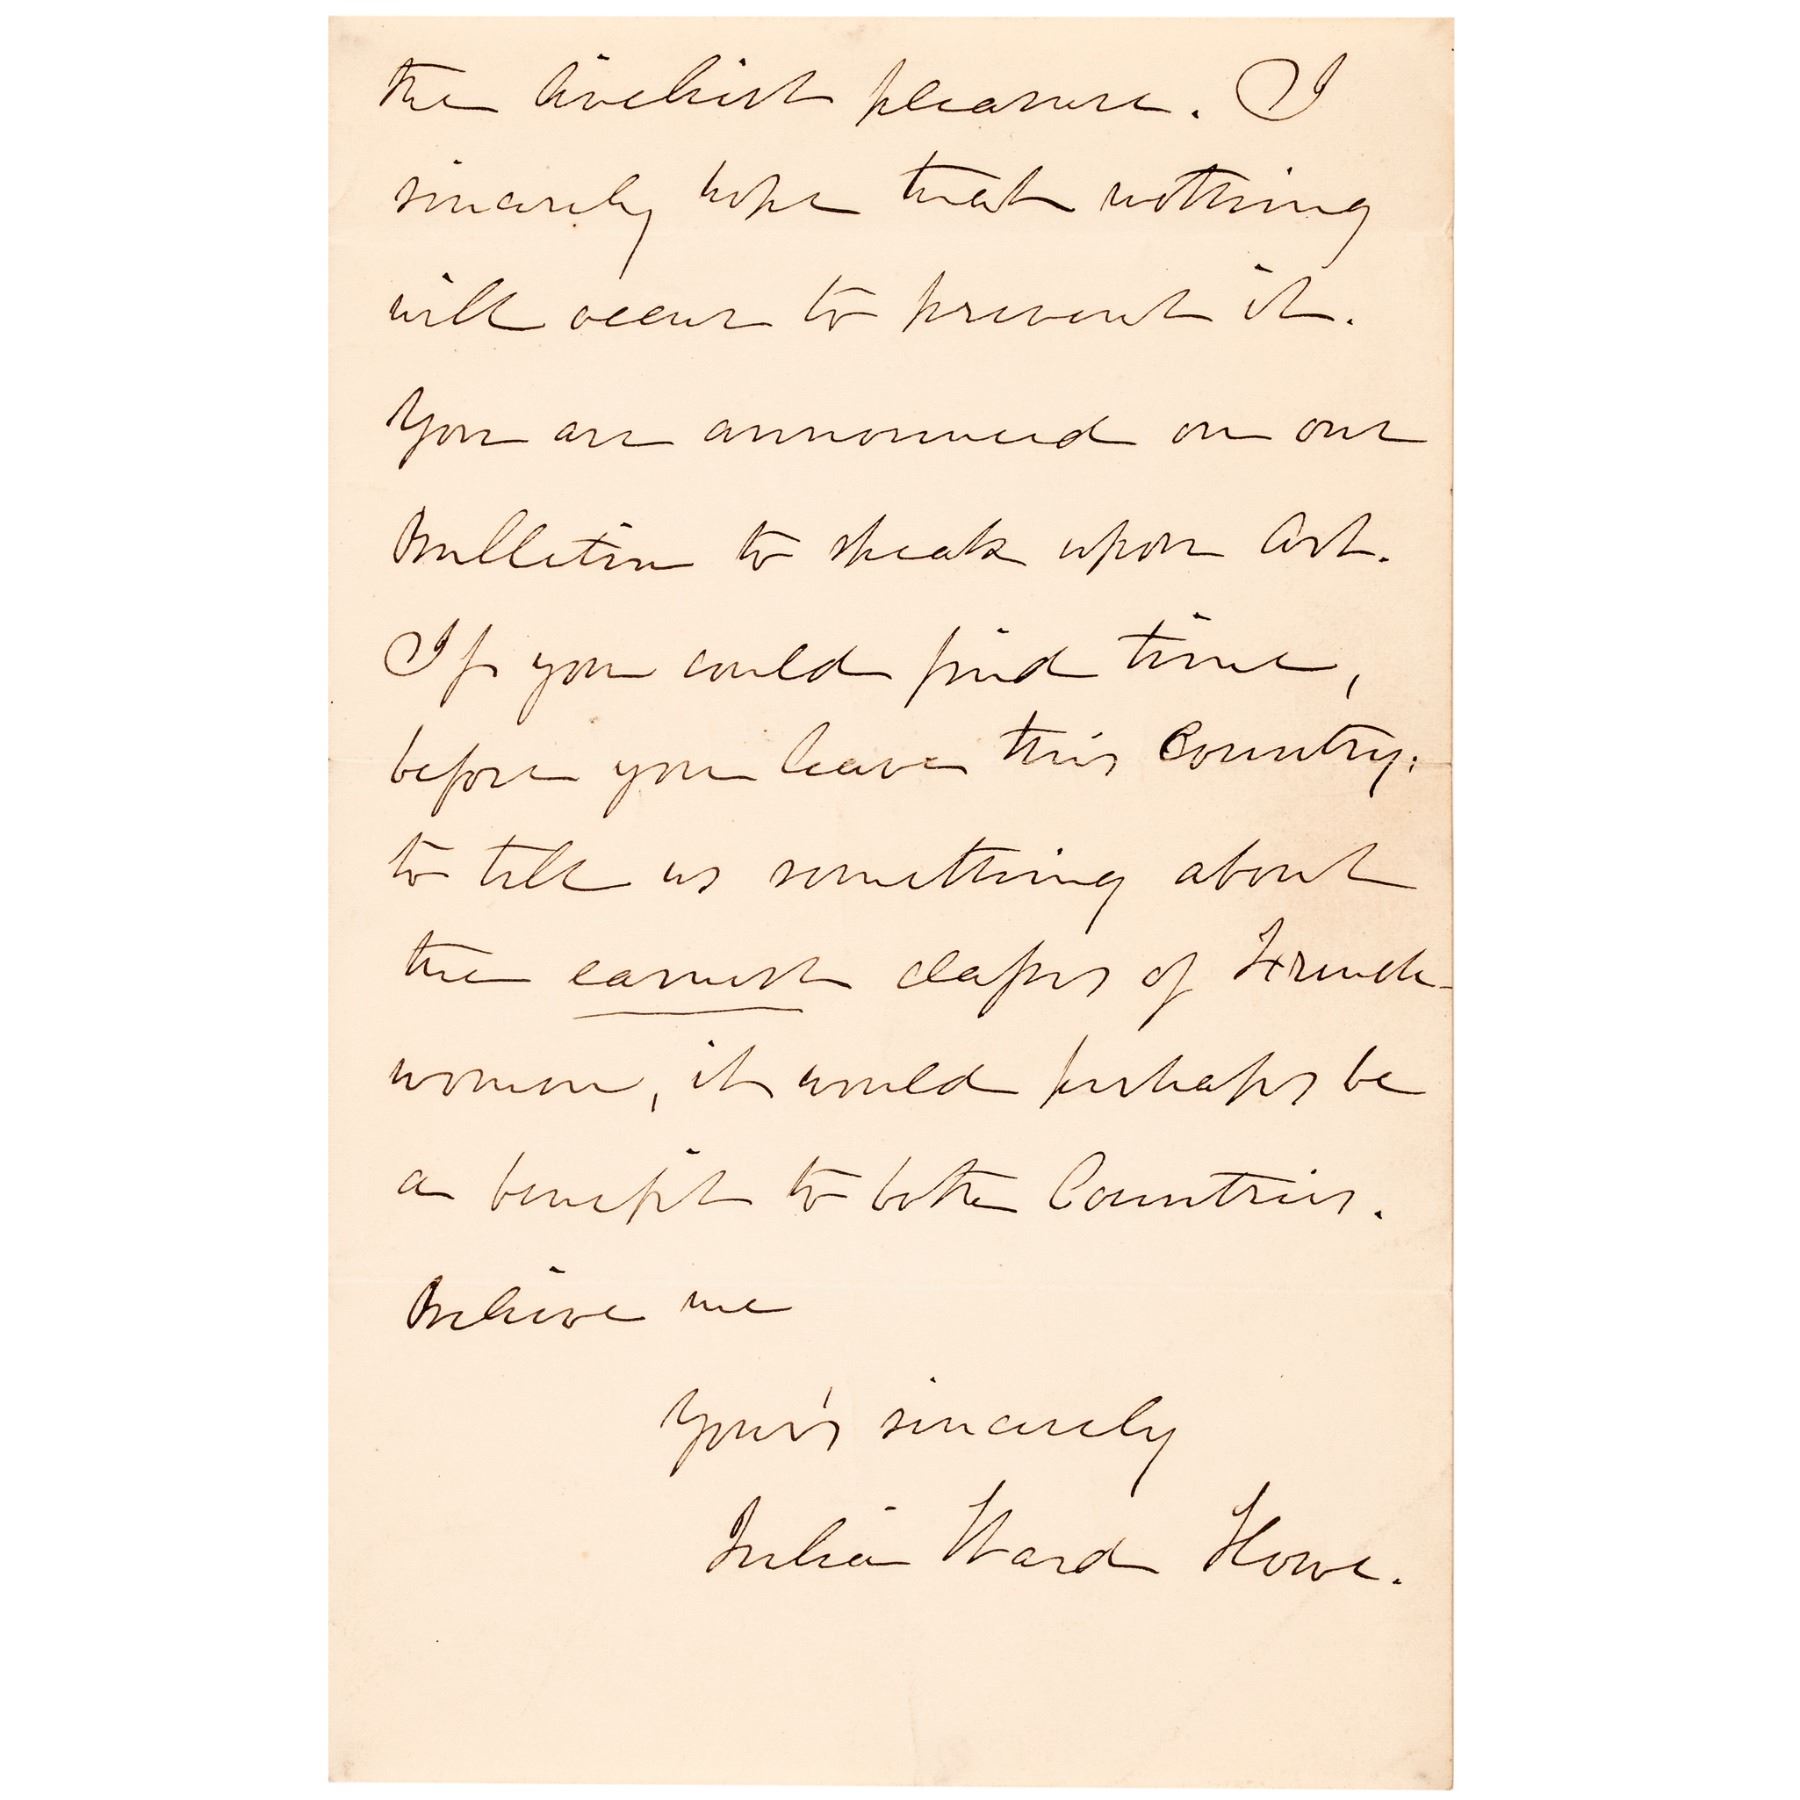 the liveliest pleasure. I
sincerely hope that nothing
will occur to prevent it.
You are announced on our
Bulletin to speak upon Art.
If you could find time,
before you leave this Country,
to tell us something about
the earnest classes of French-
women, it would perhaps be
a benefit to both Countries.
Believe me
Your's sincerely
Julia Ward Howe.